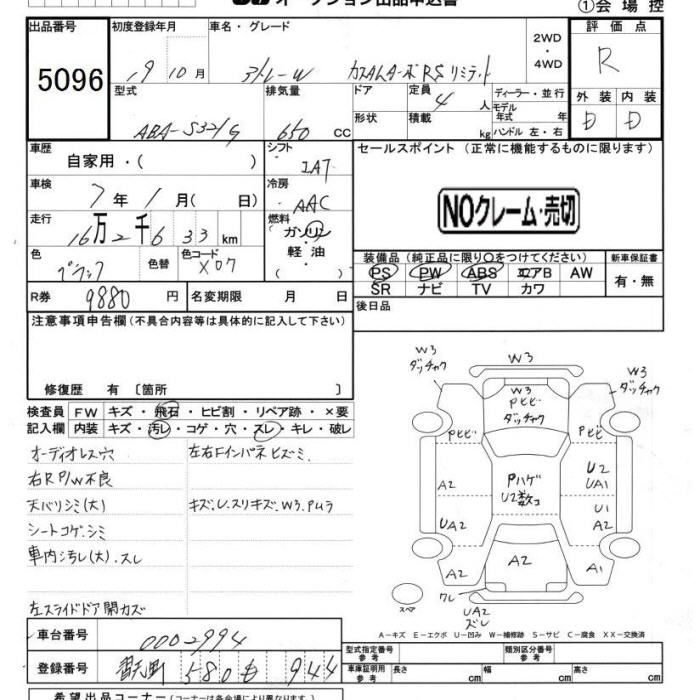 オークション出品申込書
①会場控
出品番号
5096
初度登録年月
19 10 月
車名・グレード
アトレーW カスタムターボRSリミテッド
2WD
・
4WD
評価点
R
型式
ABA-S321G
排気量
650 cc
ドア
形状
定員
4 人
積載
kg
ディーラー・並行
モデル
年式 年
ハンドル 左・右
外装 内装
D D
車歴
自家用・( )
シフト
IAT
セールスポイント (正常に機能するものに限ります)
車検
7年1月( 日)
冷房
AAC
NOクレーム・売切
走行
16万2千633km
燃料
ガソリン
・
軽油
色
ブラック
色替
色コード
X07
装備品(純正品に限り○をつけてください)
新車保証書
PS PW ABS エアB AW
SR ナビ TV カワ
有・無
R券
9880 円
名変期限 月 日
後日品
注意事項申告欄(不具合内容等は具体的に記入して下さい)
修復歴 有 〔箇所 〕
検査員
記入欄
FW キズ・飛石・ヒビ割・リペア跡・×要
内装 キズ・汚レ・コゲ・穴・スレ・キレ・破レ
オーディオレス穴
左右Fインパネヒズミ
右RP/W不良
天バリシミ(大)
キズ.U.スリキズ.W3.Pムラ
シートコゲ.シミ
車内汚レ(大).スレ
左スライドドア開カズ
W3
ダッチャク
W3
W3
ダッチャク
W3
Pヒビ
ダッチャク
Pヒビ
Pヒビ
A2
Pハゲ
U2数コ
U2
UA1
U1
UA2
A2
A2
A2
A2
A1
ワレ
UA2
ズレ
スペア
A-キズ E-エクボ U-凹み W-補修跡 S-サビ C-腐食 XX-交換済
車台番号
0002994
登録番号
580 も 944
型式指定番号
参考
類別区分番号
参考
車庫証明用
参考
長さ cm
幅 cm
高さ cm
希望出品コーナー(コーナーは各会場により異なります)